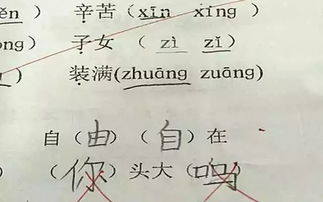 ěn） 辛苦（xīn xíng）
ong） 子女（zì zǐ）
） 装满（zhuāng zuāng）
自（由）（自）在
）（你）头大（吗）